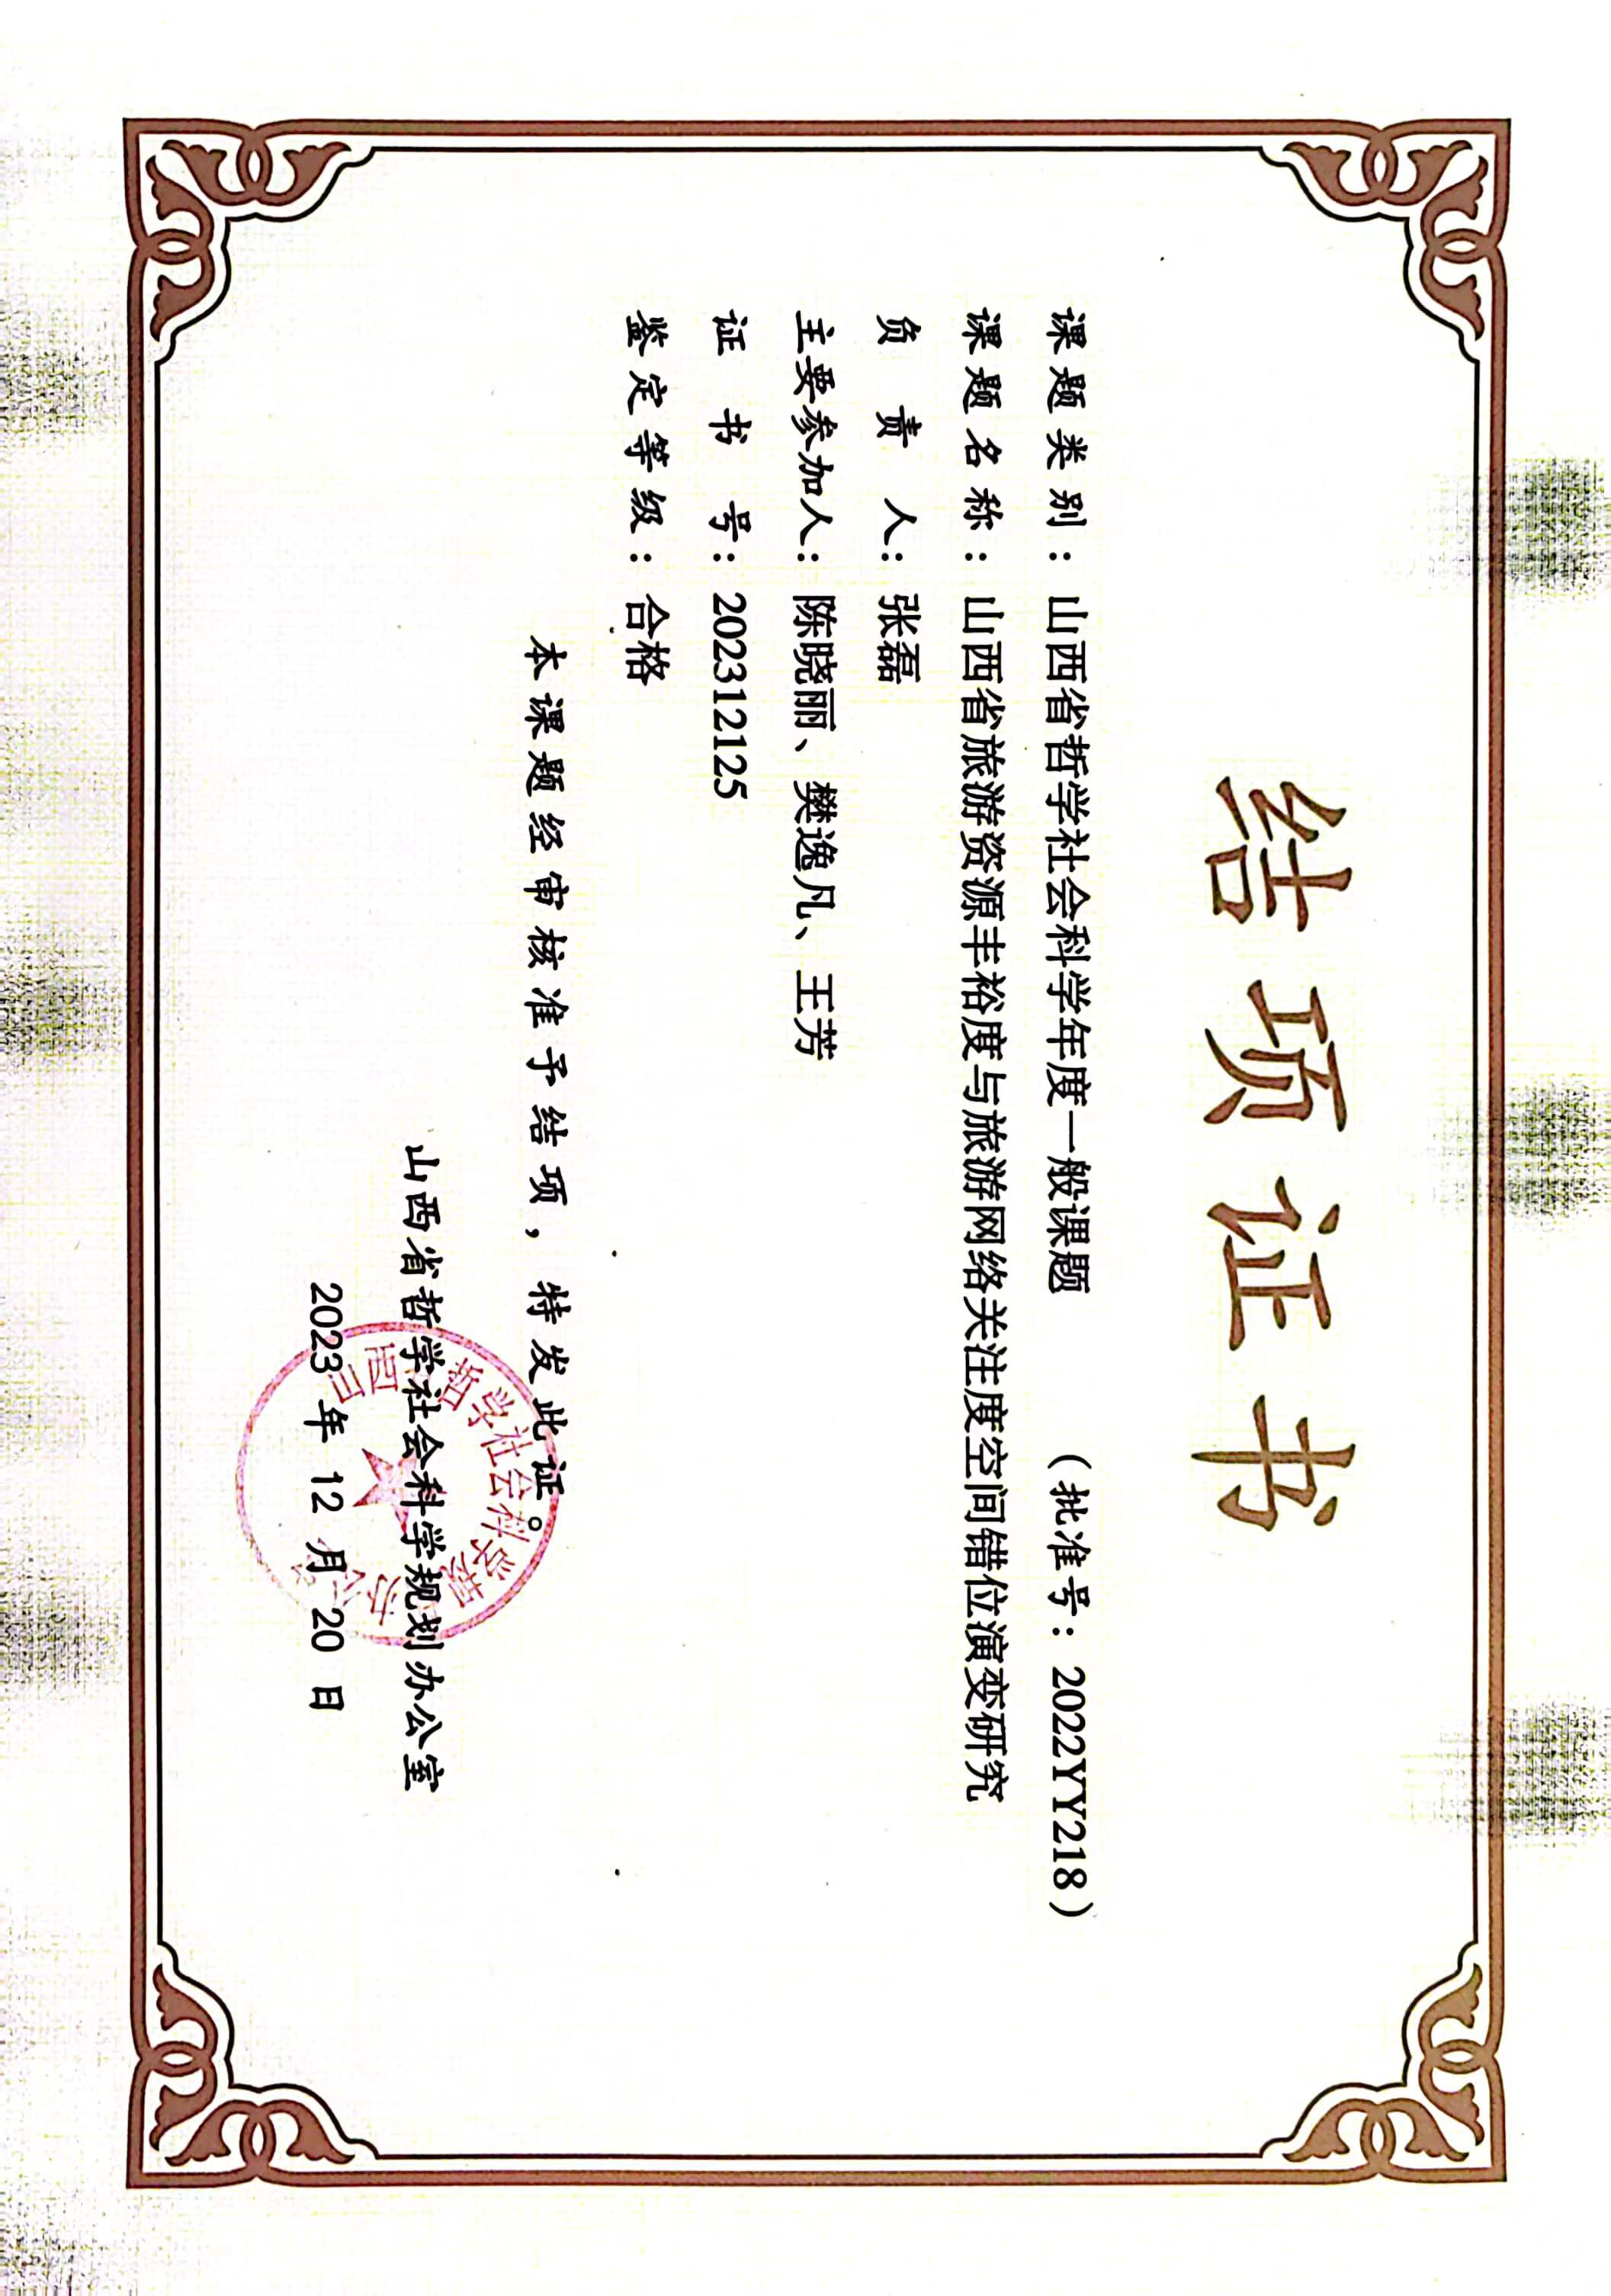 结项证书
课题类别：山西省哲学社会科学年度一般课题 （批准号：2022YY218）
课题名称：山西省旅游资源丰裕度与旅游网络关注度空间错位演变研究
负责人：张磊
主要参加人：陈晓丽、樊逸凡、王芳
证书号：202312125
鉴定等级：合格
本课题经审核准予结项，特发此证。
山西省哲学社会科学规划办公室
2023年12月20日